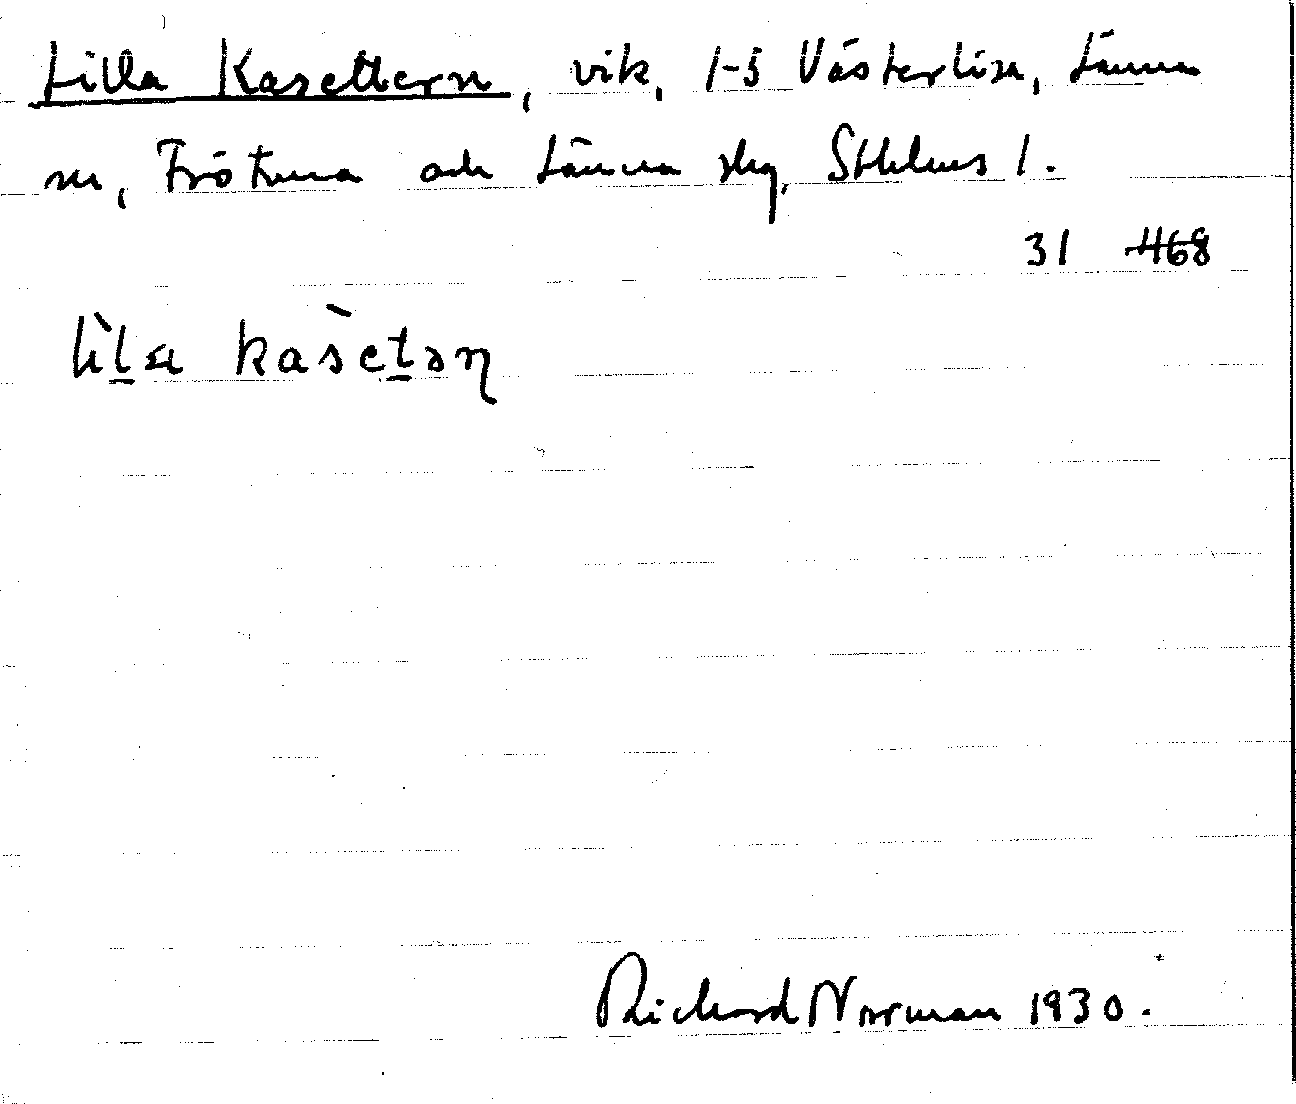 Lilla Kasettern, vik, 1-5 Västerlisa, Länna
sn, Frötuna och Länna skg, Sthlms l.
31 468
lìla kasètən
Richard Norrman 1930.